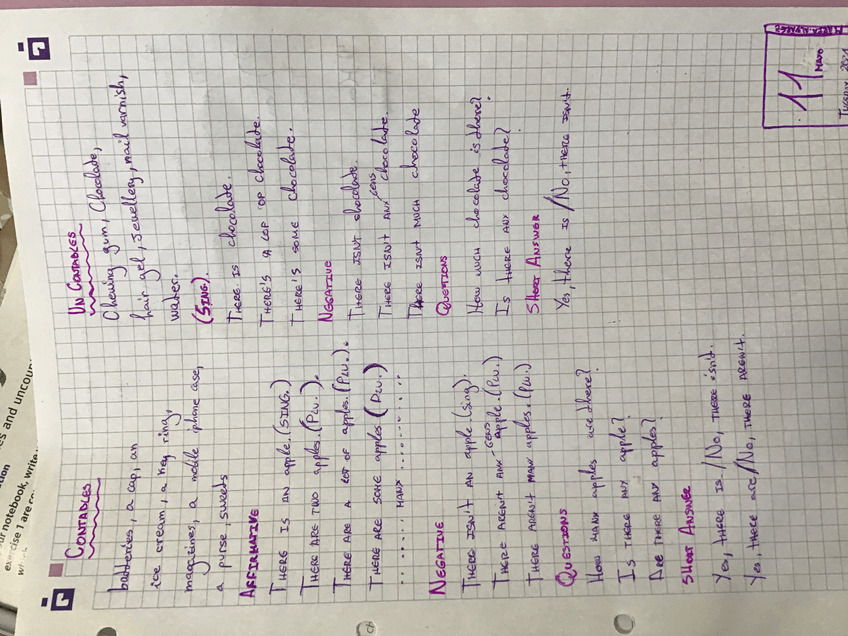 11
MAYO
TUESDAY 2021
CONTABLES
batteries, a cap, an
ice cream, a key ring,
magazines, a mobile iphone case,
a purse, sweets
AFFIRMATIVE
THERE IS AN apple. (SING.)
THERE ARE TWO apples. (PLU.).
THERE ARE A LOT OF apples. (PLU.).
THERE ARE SOME apples (PLU.)
......... MANY .........
NEGATIVE
THERE ISN'T AN apple (sing).
THERE AREN'T ANY apple. (PLU.)
CERO
THERE AREN'T MANY apples. (PLU.)
QUESTIONS
HOW MANY apples are there?
IS THERE ANY apple?
ARE THERE ANY apples?
SHORT ANSWER
Yes, THERE IS / No, THERE isn't.
Yes, there are / No, THERE AREN'T.
UN CONTABLES
Chewing gum, Chocolate,
hair gel, Jewellery, nail varnish,
water.
(SING).
THERE IS chocolate.
THERE'S A LOT OF chocolate.
THERE'S SOME chocolate.
NEGATIVE
THERE ISN'T chocolate.
THERE ISN'T ANY chocolate.
CERO
THERE ISN'T MUCH chocolate
QUESTIONS
HOW MUCH chocolate is there?
IS THERE ANY chocolate?
SHORT ANSWER
Yes, there is / No, THERE ISN'T.
s and uncoun
ur notebook, write
exercise 1 are